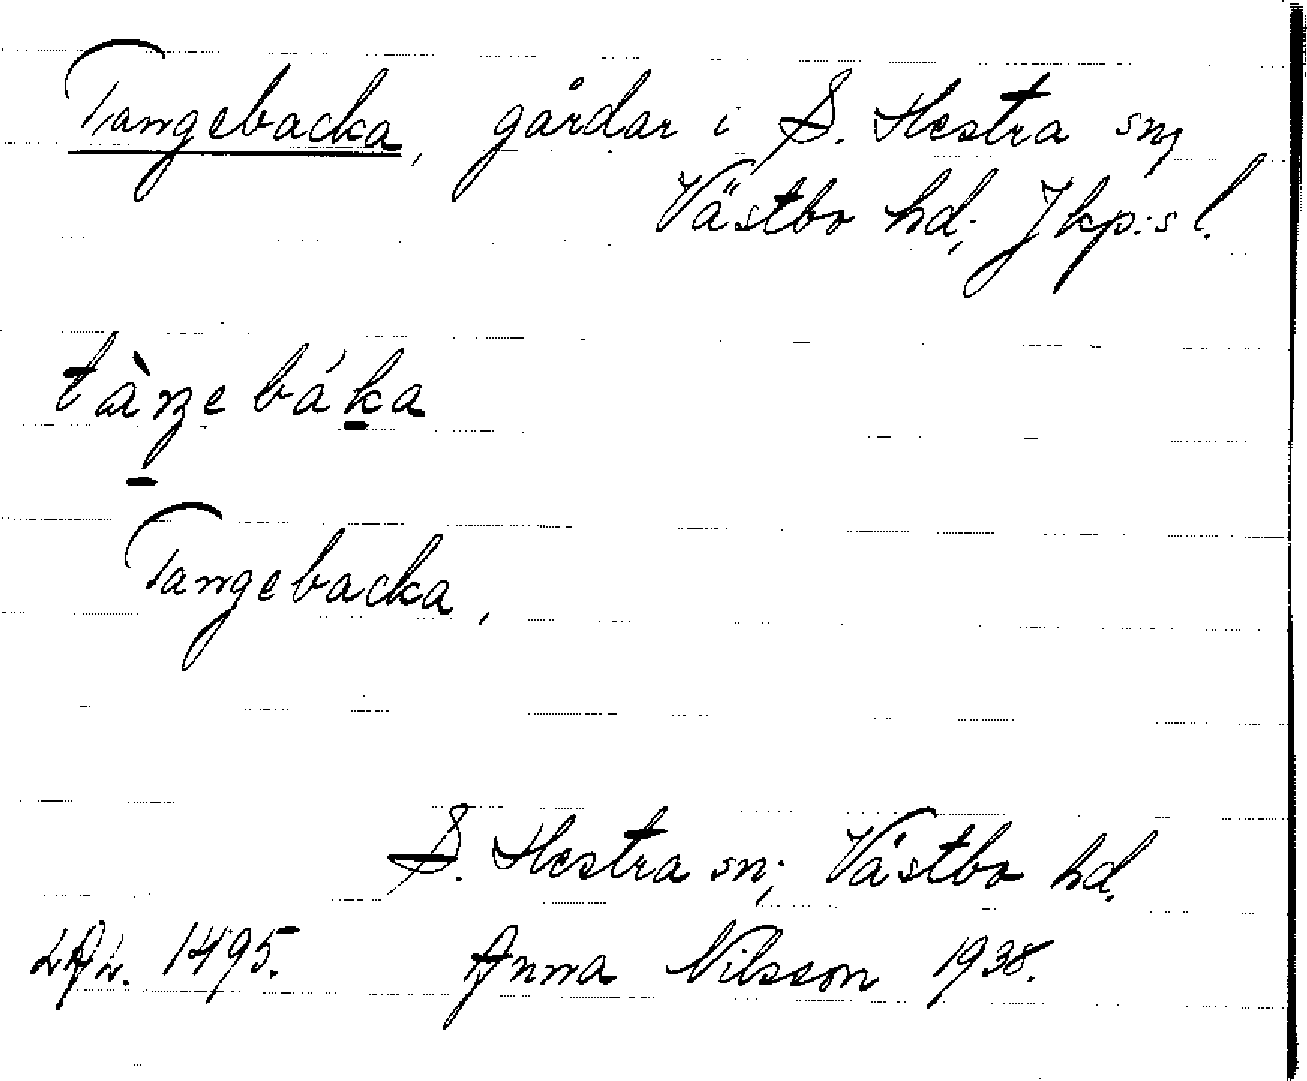 Tangebacka, gårdar i S. Hestra sn,
Västbo hd; Jkp:s l.
tàŋebáka
Tangebacka,
S. Hestra sn; Västbo hd.
1495. Anna Nilsson 1938.